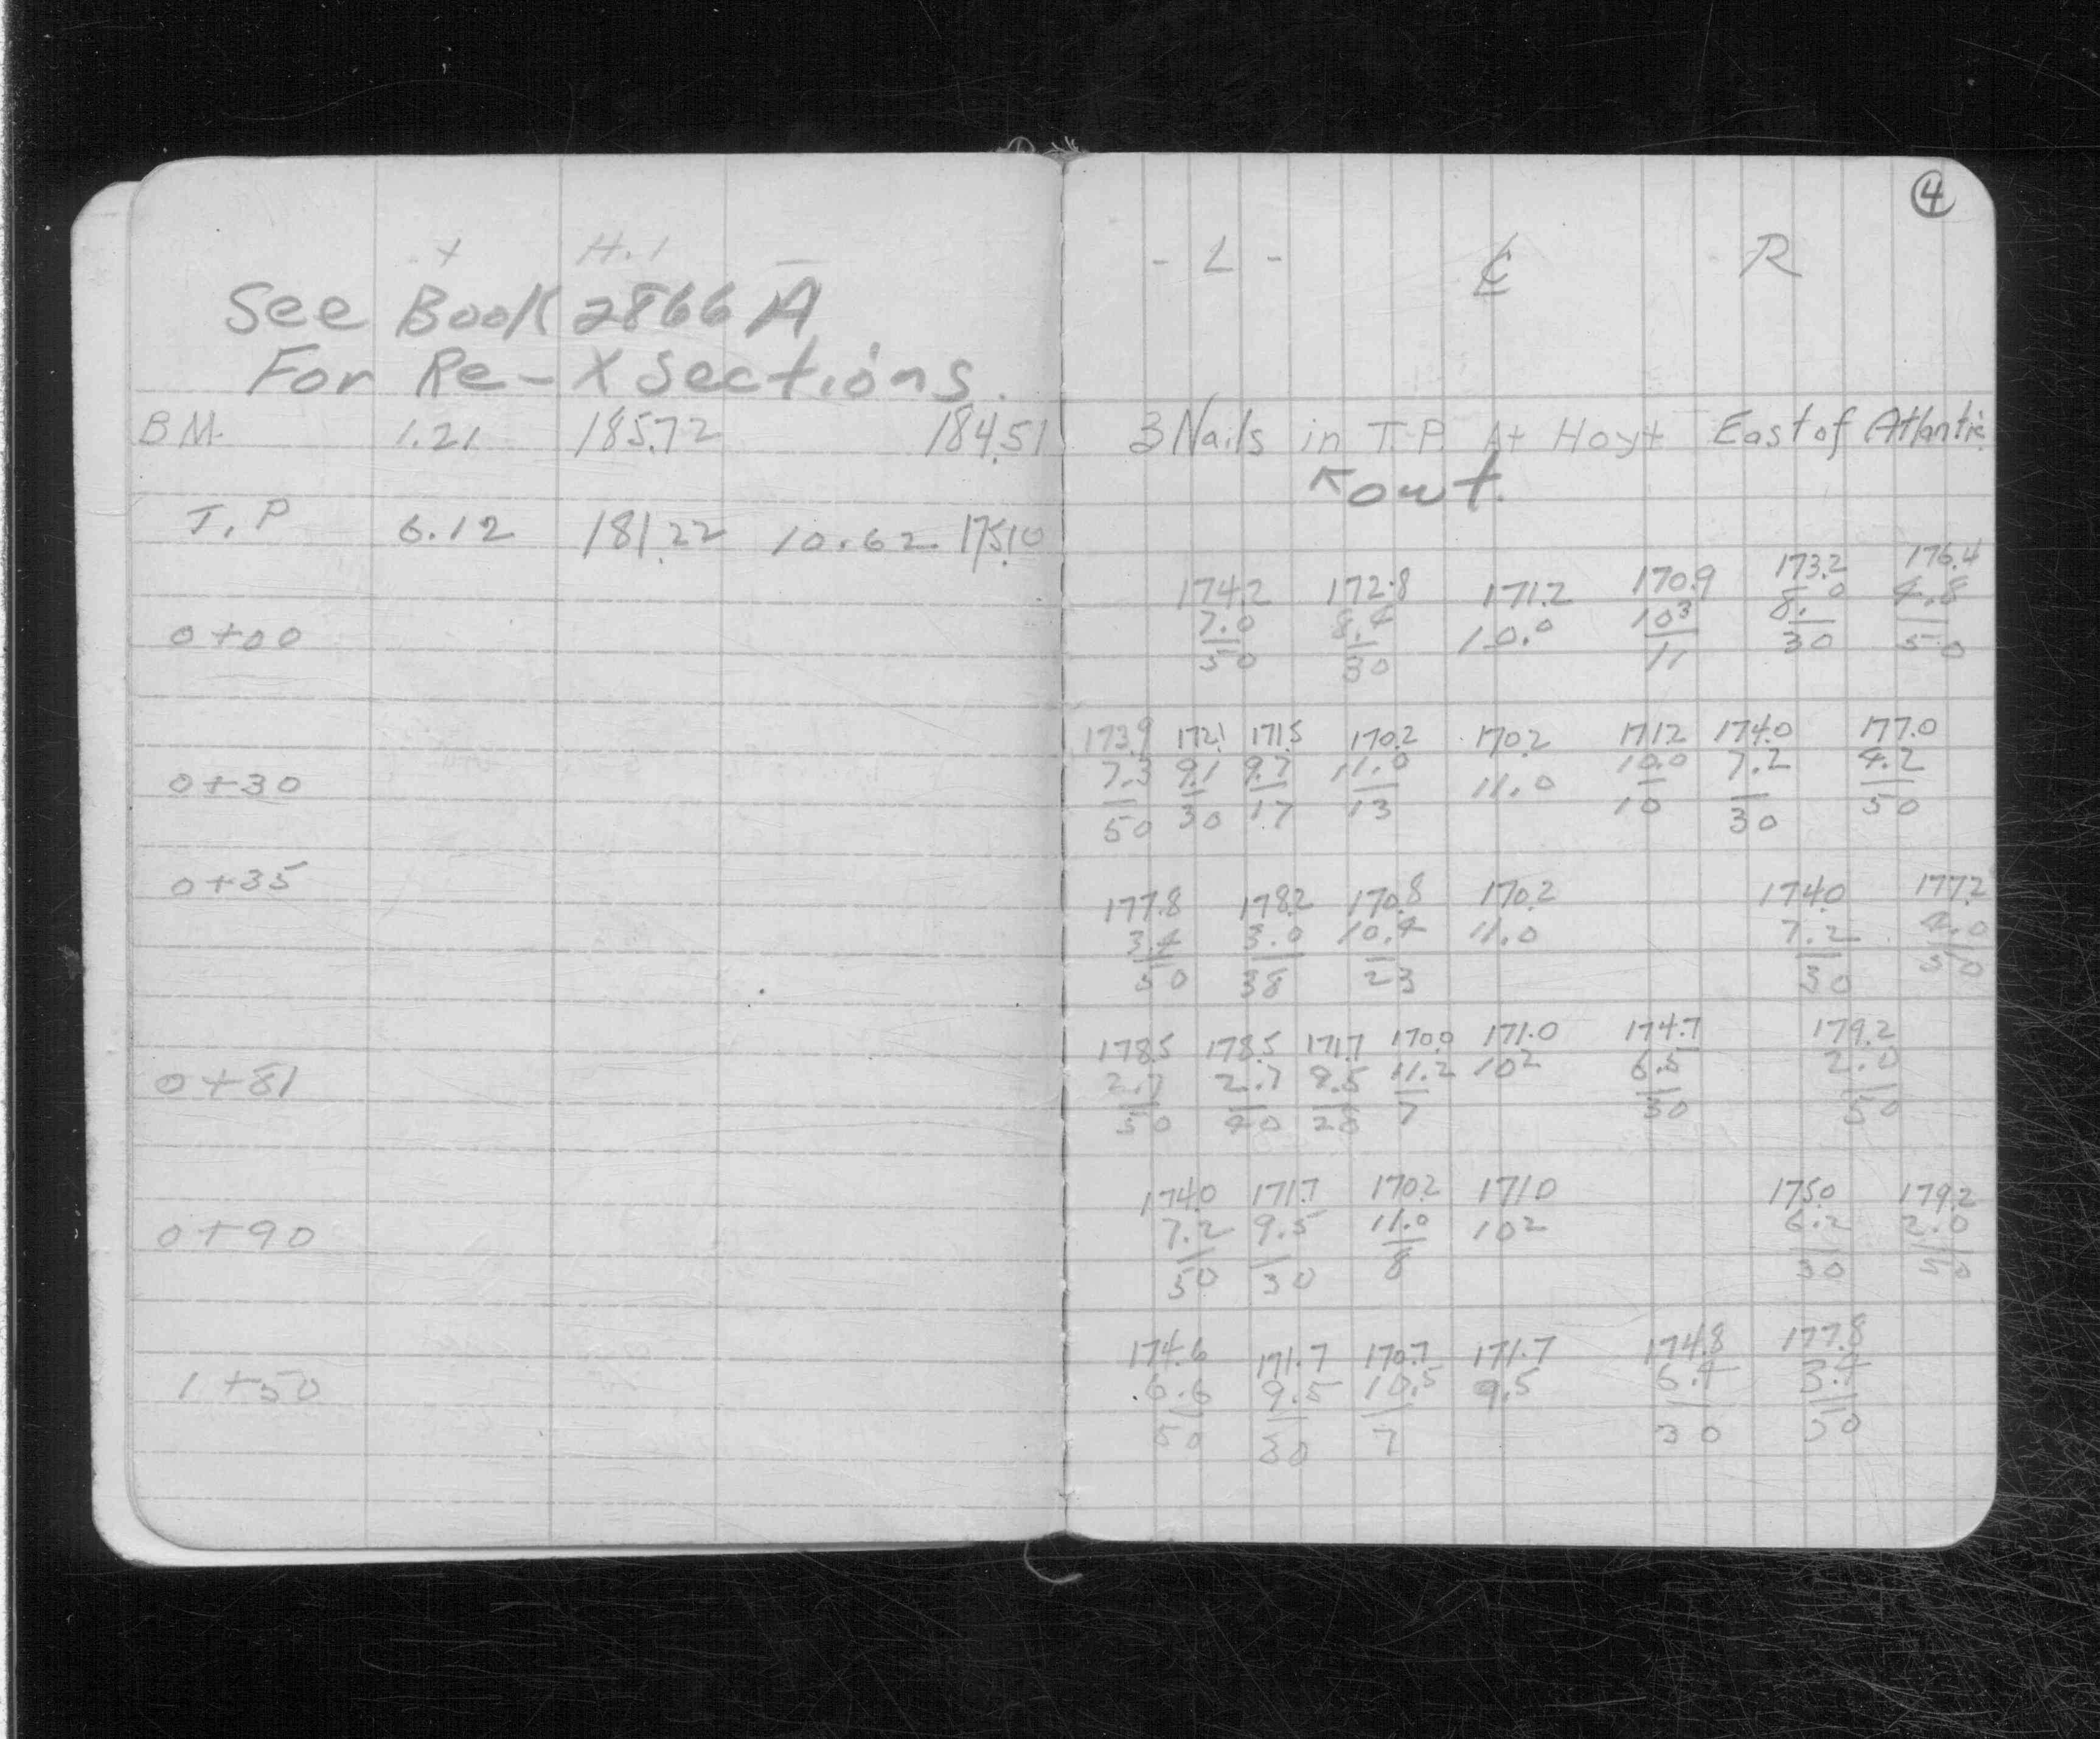 4
+ H.I −
- L - ℄ R
See Book 2866 A
For Re-X Sections.
BM. 1.21 185.72 184.51 3 Nails in T.P. At Hoyt East of Atlantic
T.P 6.12 181.22 10.62 175.10
174.2 172.8 171.2 170.9 173.2 176.4
0+00 7.0 8.4 10.0 10.3 8.0 4.8
50 30 11 30 50
173.9 172.1 171.5 170.2 170.2 171.2 174.0 177.0
0+30 7.3 9.1 9.7 11.0 11.0 10.0 7.2 4.2
50 30 17 13 10 30 50
0+35 177.8 178.2 170.8 170.2 174.0 177.2
3.4 3.0 10.4 11.0 7.2 4.0
50 38 23 30 50
178.5 178.5 171.7 170.0 171.0 174.7 179.2
0+81 2.7 2.7 9.5 11.2 10.2 6.5 2.0
50 40 28 7 30 50
174.0 171.7 170.2 171.0 175.0 179.2
0+90 7.2 9.5 11.0 10.2 6.2 2.0
50 30 8 30 50
174.6 171.7 170.7 171.7 174.8 177.8
1+50 6.6 9.5 10.5 9.5 6.4 3.4
50 30 7 30 50